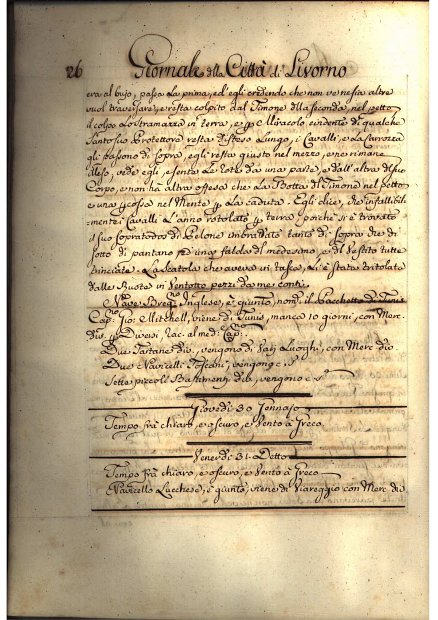 26 Giornale della Città di Livorno
era al bujo, passa la prima, ed egli credendo che non ve ne stia altre
vuol traversare, e resta colpito dal Timone della seconda, nel petto
il colpo lo stramazzo in terra, e p Miracolo evidente di qualche
Santo suo Protettore resta disteso Lungo, i Cavalli, e la Carozza
gli passono di sopra, egli resta giusto nel mezzo, e ne rimane
illeso, vede egli, e sente La Rota da una parte, e dall'altra del suo
Corpo, e non hà altra offesa che La Botta del Timone nel petto
e una scosa nel Mento p La caduta. Egli dice, che infallibil-
mente i Cavalli L'anno rotolato p terra, poiche si è trovato
il suo sopratodos di Pelone imbrattato tanto di sopra che di
sotto di pantano ed una falda del medesimo, e il Vestito tutte
trinciate. La Scatola che aveva in tasca, li è stata tritolata
dalle Ruote in Ventotto pezzi da me conti.
Nave Brego Inglese, è giunto, nom. il Pacchetto di Tunis
Cap. Gio: Mitchell, viene di Tunis, manca 10 giorni, con Merc.
Div. p Diversi, rac. al med.
Due Tartane div. vengono di Varj Luoghi, con Merc. div.
Due Navicelli Toscani, vengono c. s.
Sette piccoli Bastimenti div. vengono c. s.
Giovedi 30 Gennajo
Tempo frà chiaro, e oscuro, e Vento à Greco
Venerdi 31. Detto
Tempo frà chiaro, e oscuro, e Vento à Greco
Navicello Luchese, è giunto, viene di Viareggio con Merc. div.